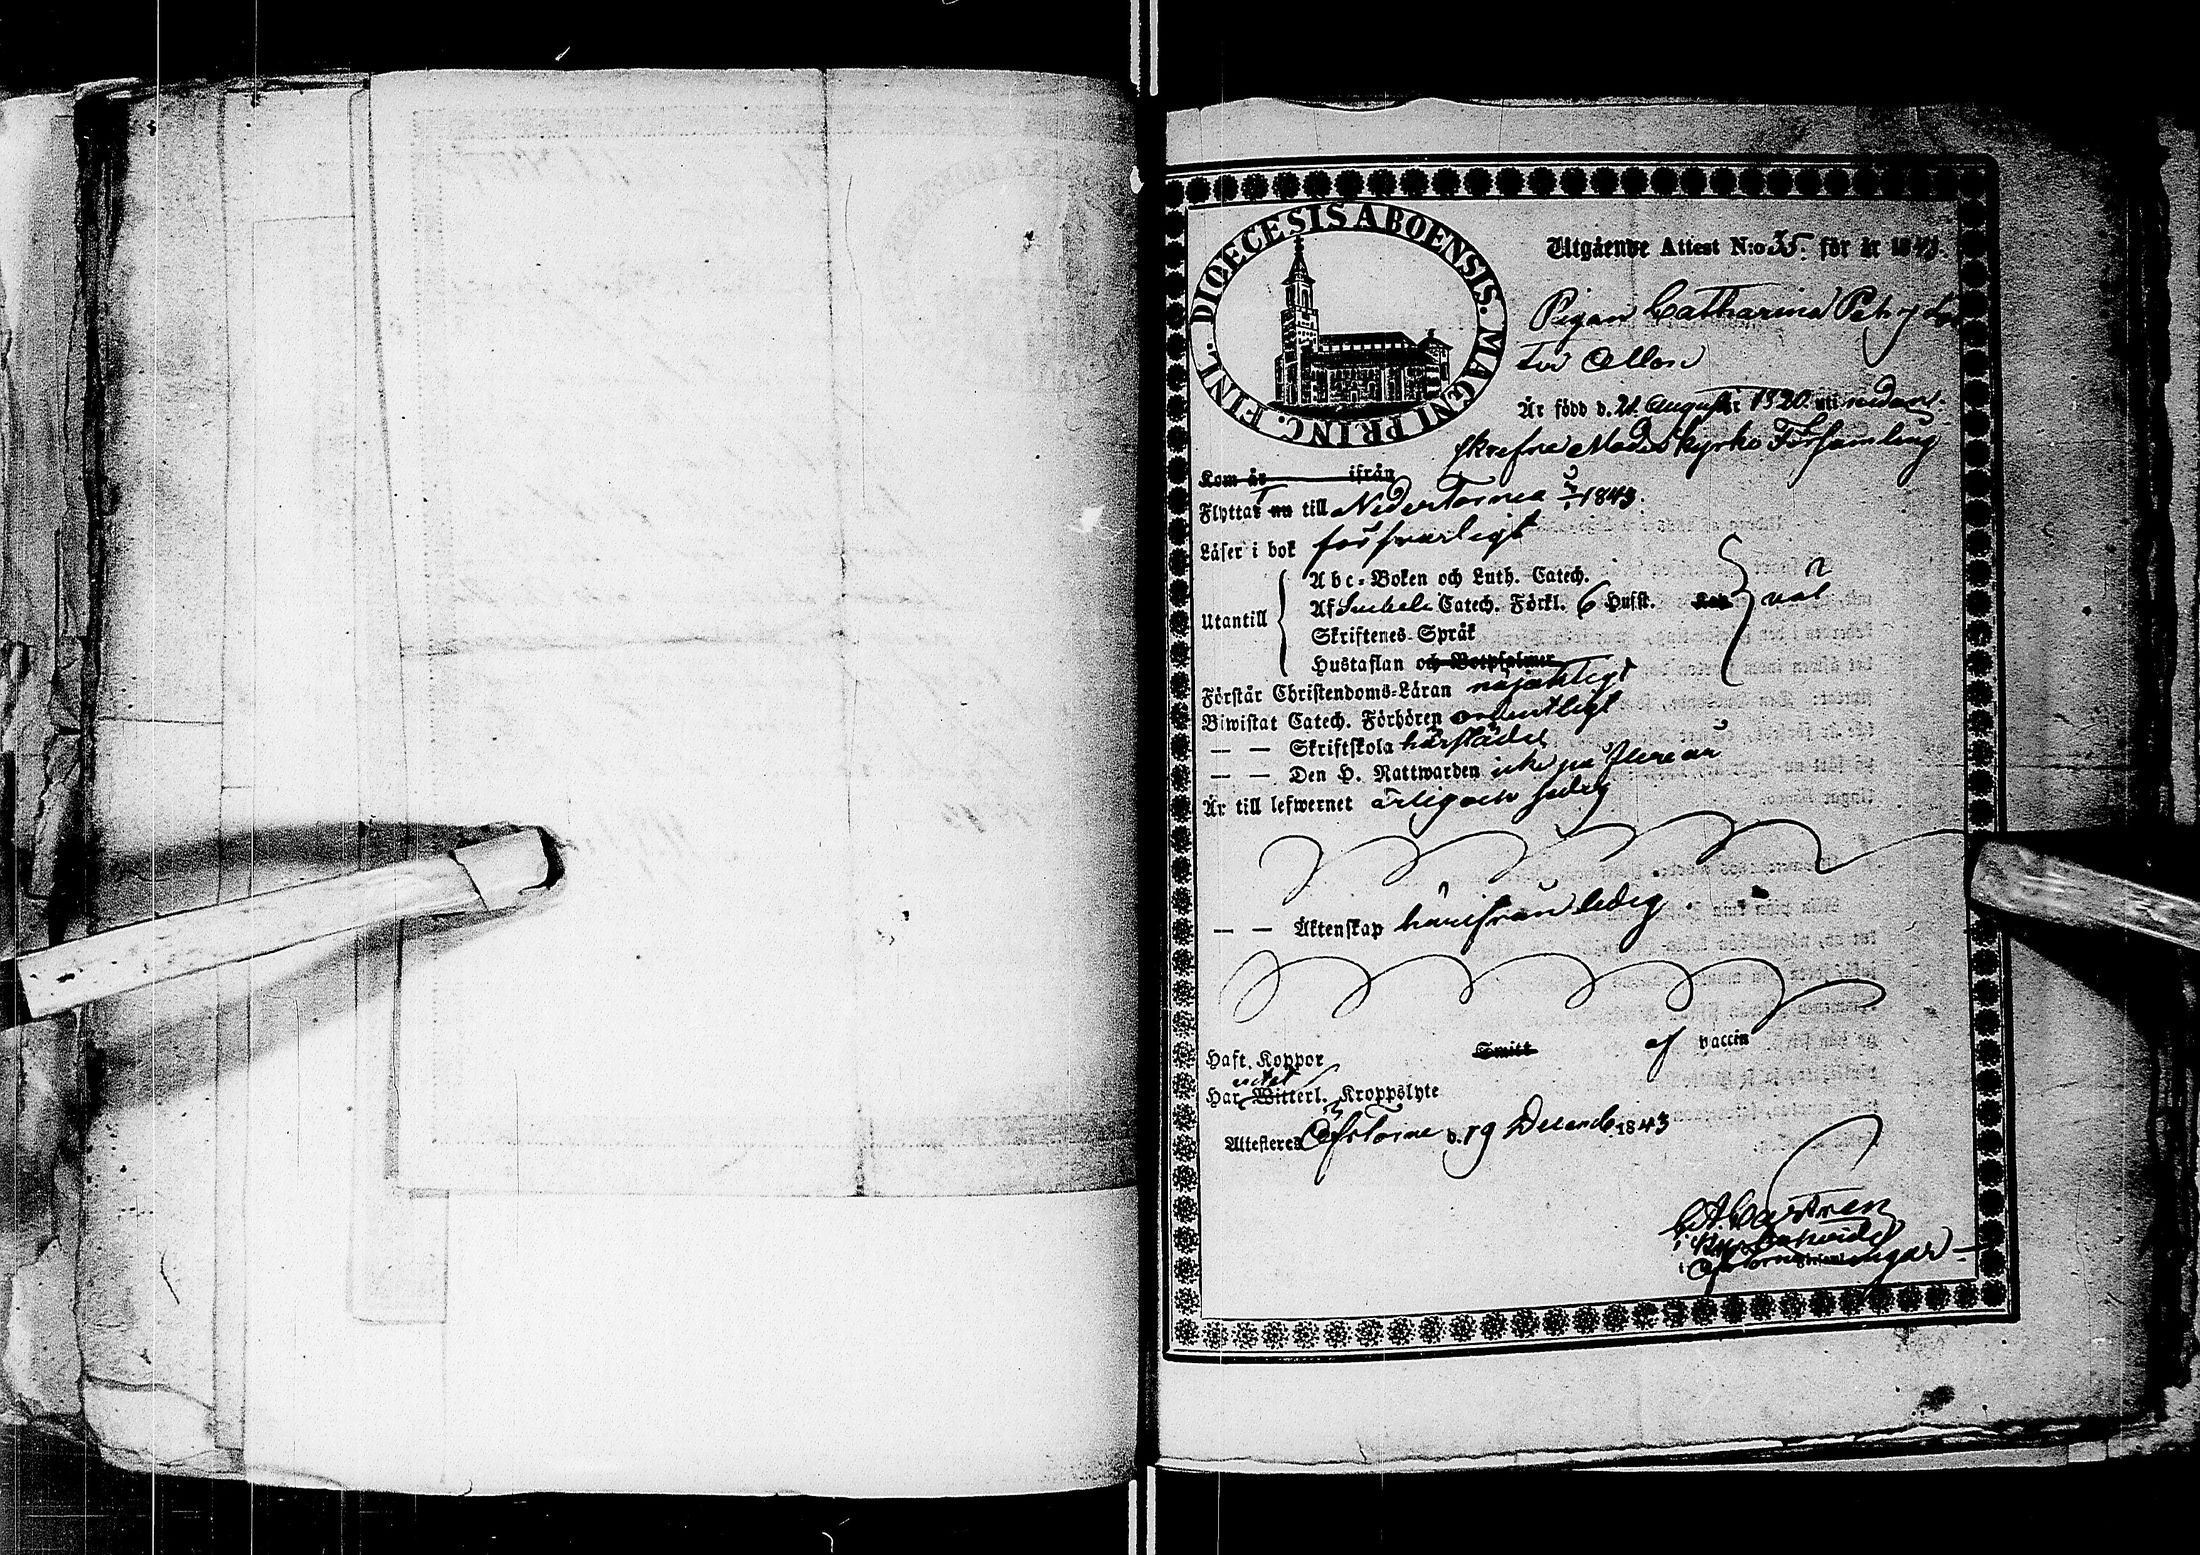 DIOECESIS ABOENSIS. MAGNI PRINC. FINL.
Utgående Attest N:o 35. för år 1843.
Pigan Catharina Petrsdr
Är född d. 21 Augusti 1820. uti nedan-
skrefne Moderkyrko Församling
Kom år ifrån
Flyttar nu till Neder Tornea 1843.
Läser i bok försvarligt
Utantill
Abc-Boken och Luth. Catech.
Af Svebeli Catech. Förkl. 6 Hufst. Kap. väl
Skriftenes Språk
Hustaflan och Botpsalmer
Förstår Christendoms-Läran nöjaktligt
Biwistat Catech. Förhören ordentligt
— — Skriftskola härstädes
— — Den H. Nattwarden icke på flere år
Är till lefwernet ärlig och sedig
— — Äktenskap härifrån ledig.
Haft Koppor Smitt af vaccin
Har Witterl. Kroppslyte
Attesteras Öfver Torne d. 19 Decemb. 1843
Castren